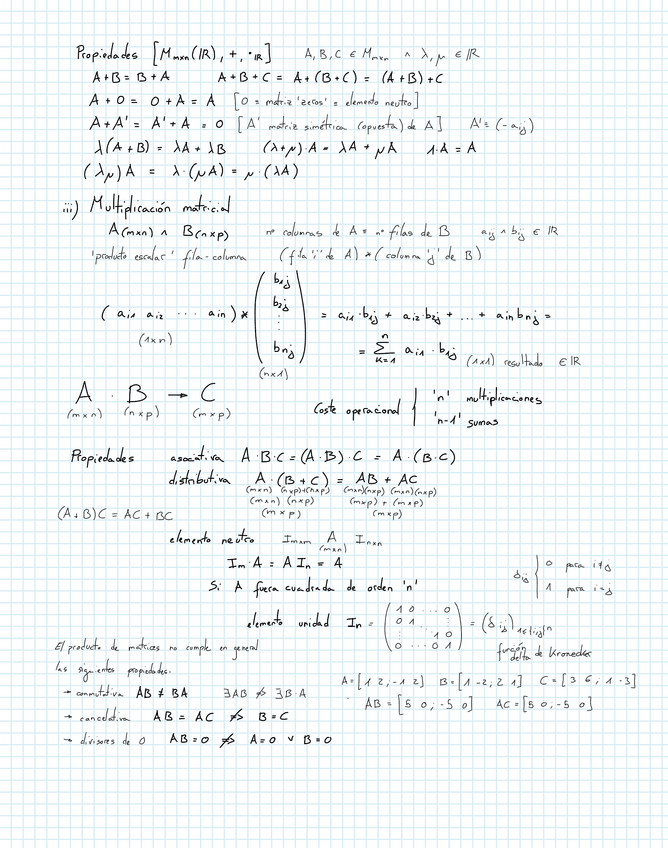 Propiedades [M_{m×n}(ℝ), +, ·_ℝ] A, B, C ∈ M_{m×n} ∧ λ, μ ∈ ℝ
A+B = B+A A+B+C = A+(B+C) = (A+B)+C
A+0 = 0+A = A [0 = matriz 'zeros' = elemento neutro]
A+A' = A'+A = 0 [A' matriz simétrica (opuesta) de A] A' = (-a_{ij})
λ(A+B) = λA + λB (λ+μ)·A = λA + μA 1·A = A
(λμ)A = λ·(μA) = μ·(λA)
iii) Multiplicación matricial
A(m×n) ∧ B(n×p) nº columnas de A = nº filas de B a_{ij} ∧ b_{ij} ∈ ℝ
'producto escalar' fila-columna (fila 'i' de A) * (columna 'j' de B)
(a_{i1} a_{i2} ... a_{in}) * (b_{1j} b_{2j} ⋮ b_{nj}) = a_{i1}·b_{1j} + a_{i2}·b_{2j} + ... + a_{in} b_{nj} =
(1×n) (n×1)
= Σ_{k=1}^{n} a_{i1}·b_{1j} (1×1) resultado ∈ ℝ
A · B → C
(m×n) (n×p) (m×p)
Coste operacional | 'n' multiplicaciones
'n-1' sumas
Propiedades asociativa A·B·C = (A·B)·C = A·(B·C)
distributiva A·(B+C) = AB + AC
(m×n) (n×p)+(n×p) (m×n)(n×p) (m×n)(n×p)
(m×n) (n×p) (m×p) + (m×p)
(m×p) (m×p)
(A+B)C = AC + BC
elemento neutro I_{m×m} A I_{n×n}
(m×n)
I_m·A = A I_n = A
Si A fuera cuadrada de orden 'n'
δ_{ij} { 0 para i≠j
1 para i=j
elemento unidad I_n = (1 0 ... 0
0 1 ⋮
⋮ 1 0
0 ... 0 1) = (δ_{ij})_{1≤i,j≤n}
función delta de Kronecker
El producto de matrices no cumple en general
las siguientes propiedades.
→ conmutativa AB ≠ BA ∃AB ⇏ ∃B·A
→ cancelativa AB = AC ⇏ B=C
→ divisores de 0 AB=0 ⇏ A=0 ∨ B=0
A=[1 2;-1 2] B=[1 -2; 2 1] C=[3 6; 1 -3]
AB = [5 0; -5 0] AC=[5 0;-5 0]